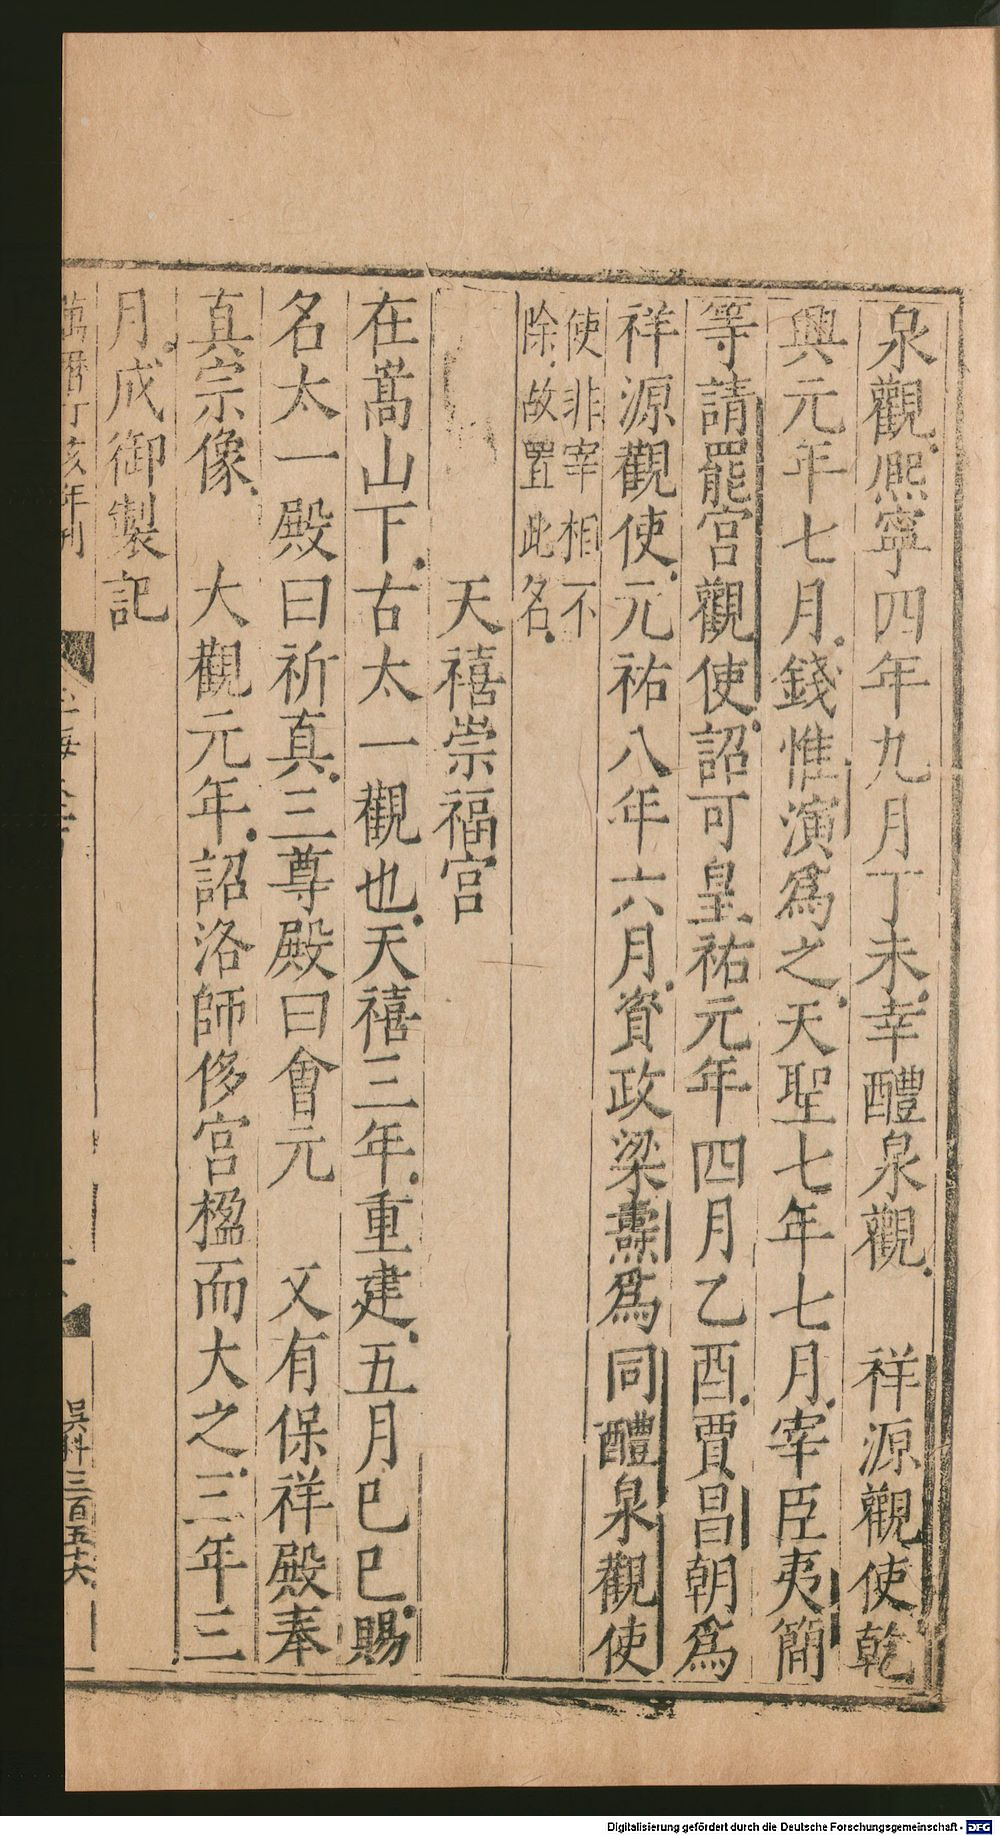 泉觀熈寧四年九月丁未幸醴泉觀　祥源觀使乾
興元年七月錢惟演爲之天聖七年七月宰臣夷簡
等請罷宮觀使詔可皇祐元年四月乙酉賈昌朝爲
祥源觀使元祐八年六月資政梁燾爲同醴泉觀使
使非宰相不
除故置此名
天禧崇福宮
在嵩山下古太一觀也天禧三年重建五月己巳賜
名太一殿曰祈真三尊殿曰會元　又有保祥殿奉
真宗像　大觀元年詔洛師侈宮楹而大之三年三
月成御製記
萬曆丁亥年刊
吳科三百五十六
Digitalisierung gefördert durch die Deutsche Forschungsgemeinschaft - DFG